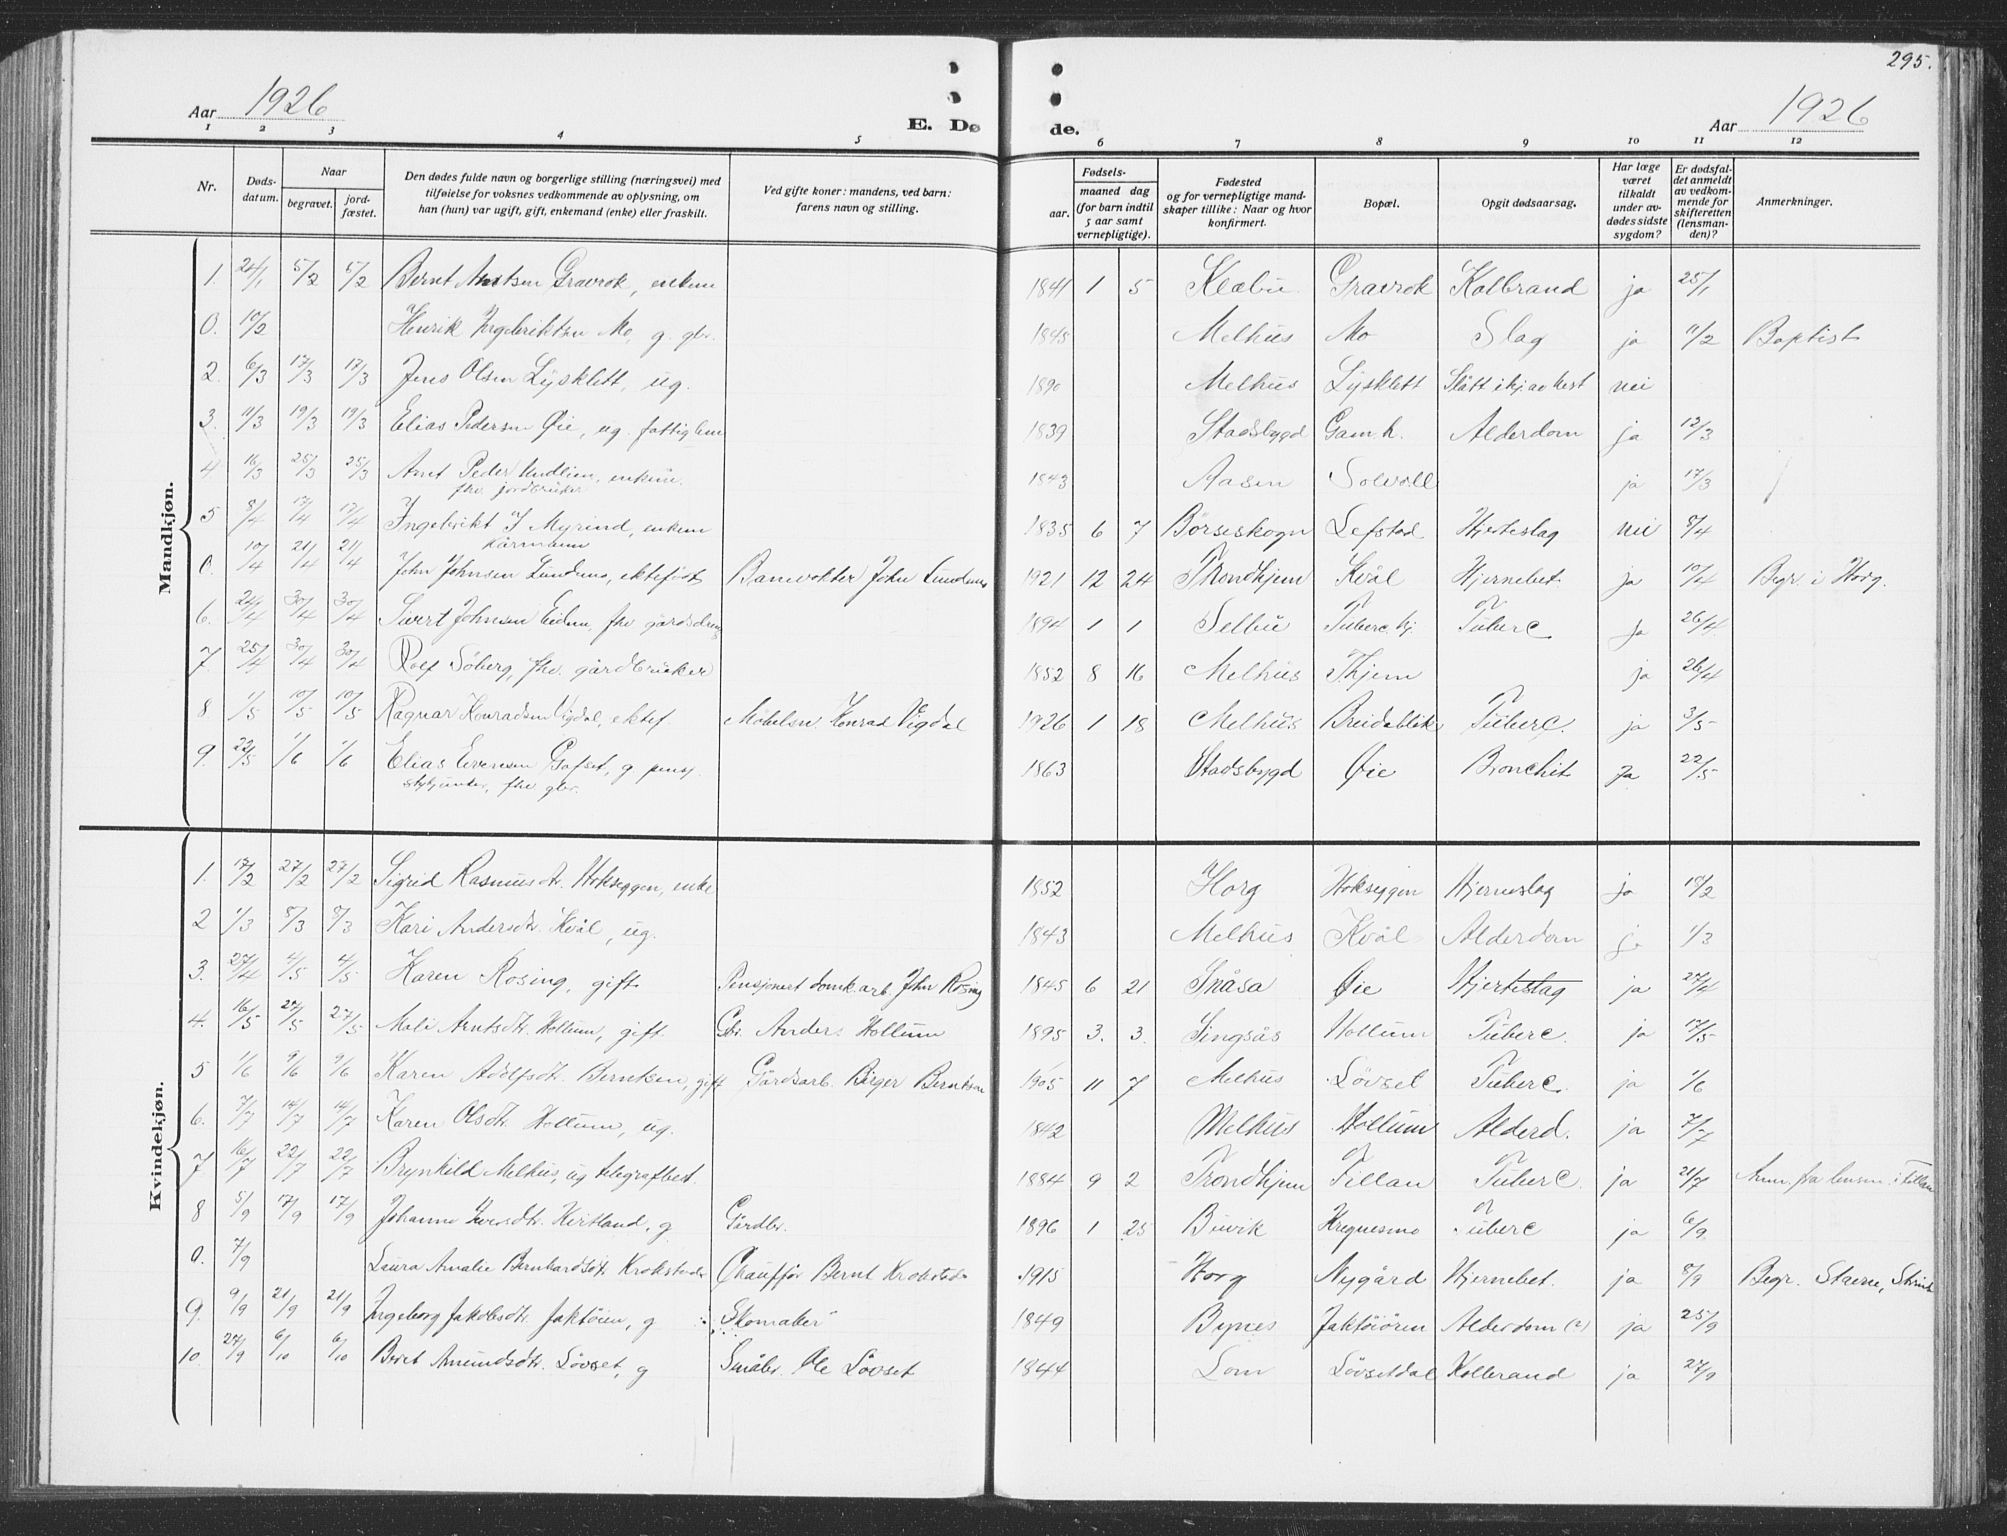 295.
Aar 1926
E. Dø de.
Aar 1926
1 2 3 4 5 6 7 8 9 10 11 12
Nr.
Døds-datum.
Naar
begravet.
jord-fæstet.
Den dødes fulde navn og borgerlige stilling (næringsvei) med
tilføielse for voksnes vedkommende av oplysning, om
han (hun) var ugift, gift, enkemand (enke) eller fraskilt.
Ved gifte koner: mandens, ved barn:
farens navn og stilling.
Fødsels-
aar.
maaned dag
(for barn indtil
5 aar samt
vernepligtige).
Fødested
og for vernepligtige mand-
skaper tillike: Naar og hvor
konfirmert.
Bopæl.
Opgit dødsaarsag.
Har læge
været
tilkaldt
under av-
dødes sidste
sygdom?
Er dødsfal-
det anmeldt
av vedkom-
mende for
skifteretten
(lensman-
den)?
Anmerkninger.
Mandkjøn.
1. 24/1 5/2 5/2 Bernt Arntsen Gravrok, enkem 1841 1 5 Klæbu Gravrok Kolbrand ja 25/1
0. 10/2 Henrik Ingebriktsen Mo, g. gbr. 1845 Melhus Mo Slag ja 11/2 Baptist
2. 6/3 17/3 17/3 Jens Olsen Lysklett, ug. 1890 Melhus Lysklett Slått ihj. av hest nei
3. 11/3 19/3 19/3 Elias Pedersen Øie, ug. fattiglem 1839 Stadsbygd Gam.h. Alderdom ja 12/3
4. 16/3 25/3 25/3 Arnt Peder Undlien, enkem. 1843 Aasen Solvoll ja 17/3
fhv. jordbruker
5 8/4 17/4 17/4 Ingebrikt J Myrind, enkem 1835 6 7 Børseskogn Lefstad Hjerteslag nei 8/4
kårmann
0. 10/4 21/4 21/4 John Johnsen Lundemo, ektefødt Banevokter John Lundemo 1921 12 24 Trondhjem Kvål Hjernebet. ja 10/4 Begr. i Horg.
6. 24/4 30/4 30/4 Sivert Johnsen Eidem, fhv gårdsdreng 1894 1 1 Selbu Tuberc.hj. Tuberc ja 26/4
7 25/4 30/4 30/4 Rolf Søberg, fhv. gårdbruker 1852 8 16 Melhus Thjem ja 26/4
8 1/5 10/5 10/5 Ragnar Konradsen Vigdal, ektef. Møbelsn. Konrad Vigdal 1926 1 18 Melhus Breidablik Tuberc. ja 3/5
9. 22/5 1/6 1/6 Elias Evensen Gafset, g pens. 1863 Stadsbygd Øie Bronchit ja 22/5
stykjunker, fhv gbr.
Kvindekjøn.
1. 17/2 27/2 27/2 Sigrid Rasmusdtr. Hokseggen, enke 1852 Horg Hokseggen Hjerneslag ja 18/2
2 1/3 8/3 8/3 Kari Andersdtr. Kvål, ug. 1843 Melhus Kvål Alderdom ja 1/3
3. 27/4 4/5 4/5 Karen Rosing, gift Pensjonert domk.arb. John Rosing 1845 6 21 Snåsa Øie Hjerteslag ja 27/4
4. 16/5 27/5 27/5 Mali Arntsdtr. Hollum, gift. Gbr. Anders Hollum 1895 3. 3. Singsås Hollum Tuberc. ja 17/5
5 1/6 9/6 9/6 Karen Adolfsdtr. Berntsen, gift Gårdsarb. Birger Berntsen 1905 11 7 Melhus Løvset Tuberc. ja 1/6
6. 7/7 14/7 14/7 Karen Olsdtr. Hollum, ug. 1842 Melhus Hollum Alderd. ja 7/7
7 16/7 22/7 22/7 Brynhild Melhus, ug telegrafbest. 1884 9 2 Trondhjem Tillan Tuberc. ja 21/7 Anm. fra lensm. i Tillan
8 5/9 17/9 17/9 Johanna Iversdtr. Kvitland, g Gårdbr. 1896 1 25 Buvik Kregnesmo Tuberc ja 6/9
0. 7/9 Laura Amalie Bernhardsdtr. Krokstad Chauffør Bernt Krokstad 1915 Horg Nygård Hjernebet. ja 8/9 Begr. Stavne, Strind
9. 9/9 21/9 21/9 Ingeborg Jakobsdtr. Jaktøien, g Skomaker 1849 Bynes Jaktøiøren Alderdom (?) ja 25/9
10. 27/9 6/10 6/10 Beret Amundsdtr. Løvset, g Småbr. Ole Løvset 1844 Lom Løvsetdal Kolbrand ja 27/9